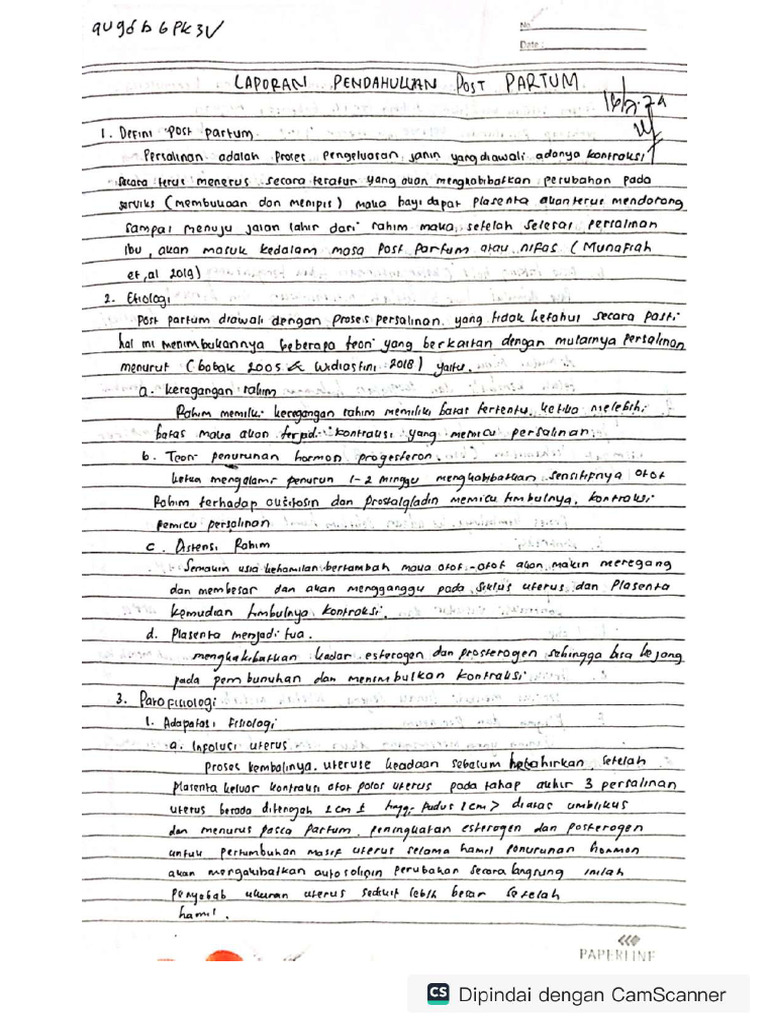 No
Date :
LAPORAN PENDAHULUAN POST PARTUM
1. Defini Post partum
Persalinan adalah Proses Pengeluaran janin yang diawali adanya kontraksi
secara terus menerus secara teratur yang akan mengkabibatkan perubahan pada
serviks (membukaan dan menipis) maka bayi dapat Plasenta akan terus mendorong
sampai menuju jalan lahir dari rahim maka, setelah selesai persalinan
ibu, akan masuk kedalam masa Post Partum atau nifas (Munafiah
et,al 2019)
2. Etiologi
Post partum diawali dengan proses persalinan yang tidak ketahui secara pasti
hal ini menimbukannya beberapa teori yang berkaitan dengan mulainya Persalinan
menurut (bobak 2005 & Widiastini 2018) yaitu.
a. keregangan rahim
Rahim memiliki keregangan rahim memiliki batas tertentu, ketika melebihi
batas maka akan terjadi kontraksi yang memicu persalinan
b. Teori penurunan hormon progesteron.
ketika mengalami penurun 1-2 minggu mengkabibatkan sensitipnya otot
Rahim terhadap oksitosin dan prostalgladin memicu timbulnya, kontraksi
pemicu persalinan
c. Distensi Rahim
Semakin usia kehamilan bertambah maka otot-otot akan makin meregang
dan membesar dan akan mengganggu pada siklus uterus dan Plasenta
kemudian timbulnya kontraksi.
d. Plasenta menjadi tua.
mengkakibatkan kadar esterogen dan prosterogen sehingga bisa kejang
pada pembunuhan dan menimbulkan kontraksi
3. Patofisiologi
1. Adapatasi Fisiologi
a. Infolusi uterus
Proses kembalinya uteruse keadaan sebelum setelah
Plasenta keluar kontraksi otot polos uterus pada tahap akhir 3 persalinan
uterus berada ditengah 2 cm Fudus 1 cm > diatas umblikus
dan menurus pasca partum, peningkatan esterogen dan posterogen
untuk pertumbuhan masif uterus selama hamil penurunan hormon
akan mengakibatkan autosolipin perubahan secara langsung inilah
Penyebab ukuran uterus sedikit lebih besar setelah
hamil.
PAPERLINE
CS Dipindai dengan CamScanner